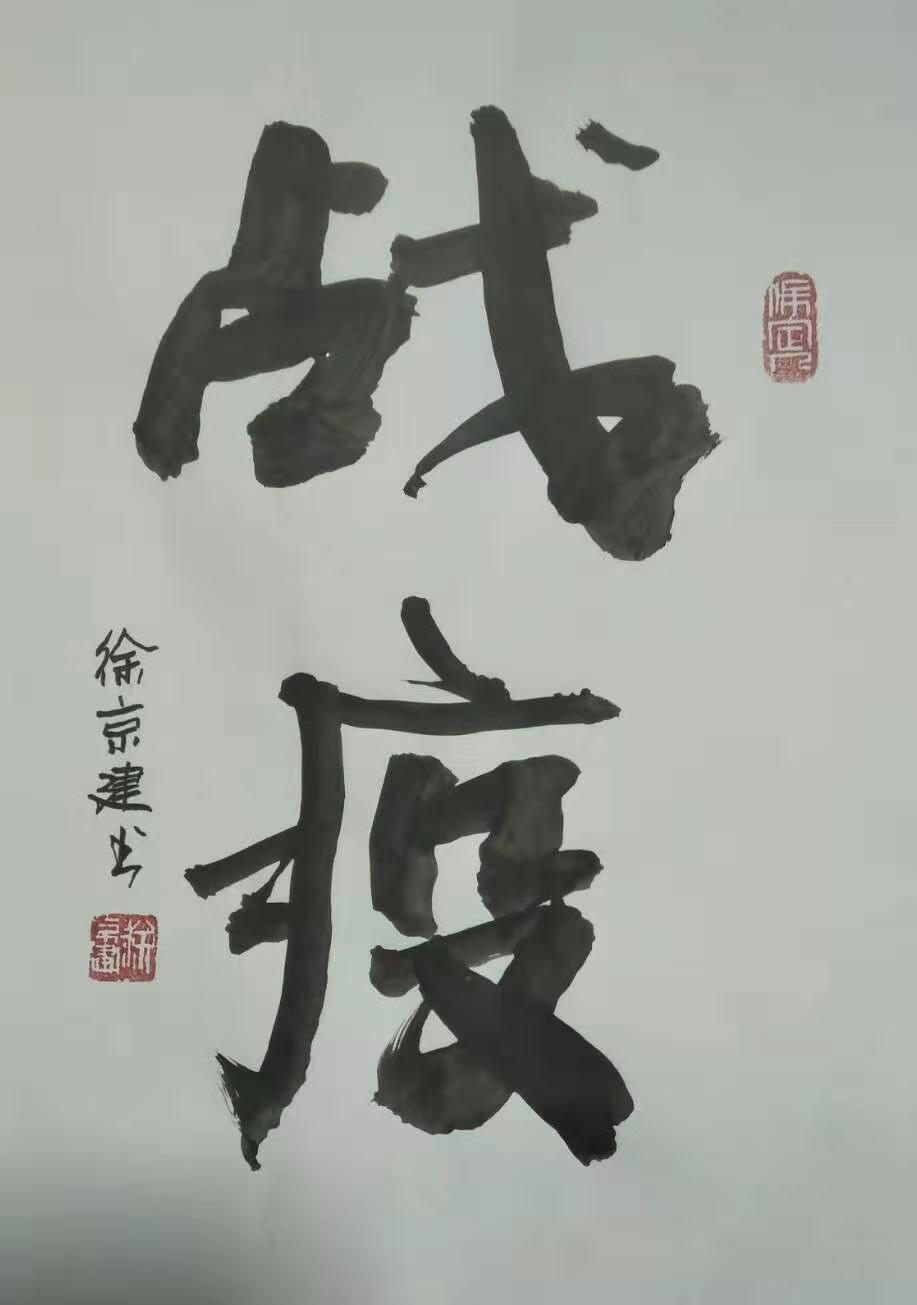 战疫
徐京建书